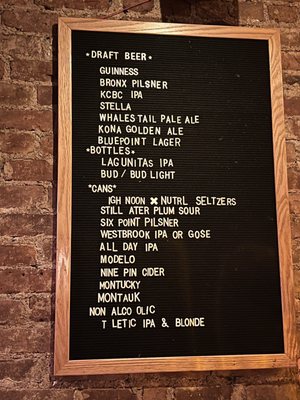 *DRAFT BEER*
GUINNESS
BRONX PILSNER
KCBC IPA
STELLA
WHALES TAIL PALE ALE
KONA GOLDEN ALE
BLUEPOINT LAGER
*BOTTLES*
LAGUNITAS IPA
BUD/BUD LIGHT
*CANS*
IGH NOON × NUTRL SELTZERS
STILL ATER PLUM SOUR
SIX POINT PILSNER
WESTBROOK IPA OR GOSE
ALL DAY IPA
MODELO
NINE PIN CIDER
MONTUCKY
MONTAUK
NON ALCO OLIC
T LETIC IPA & BLONDE